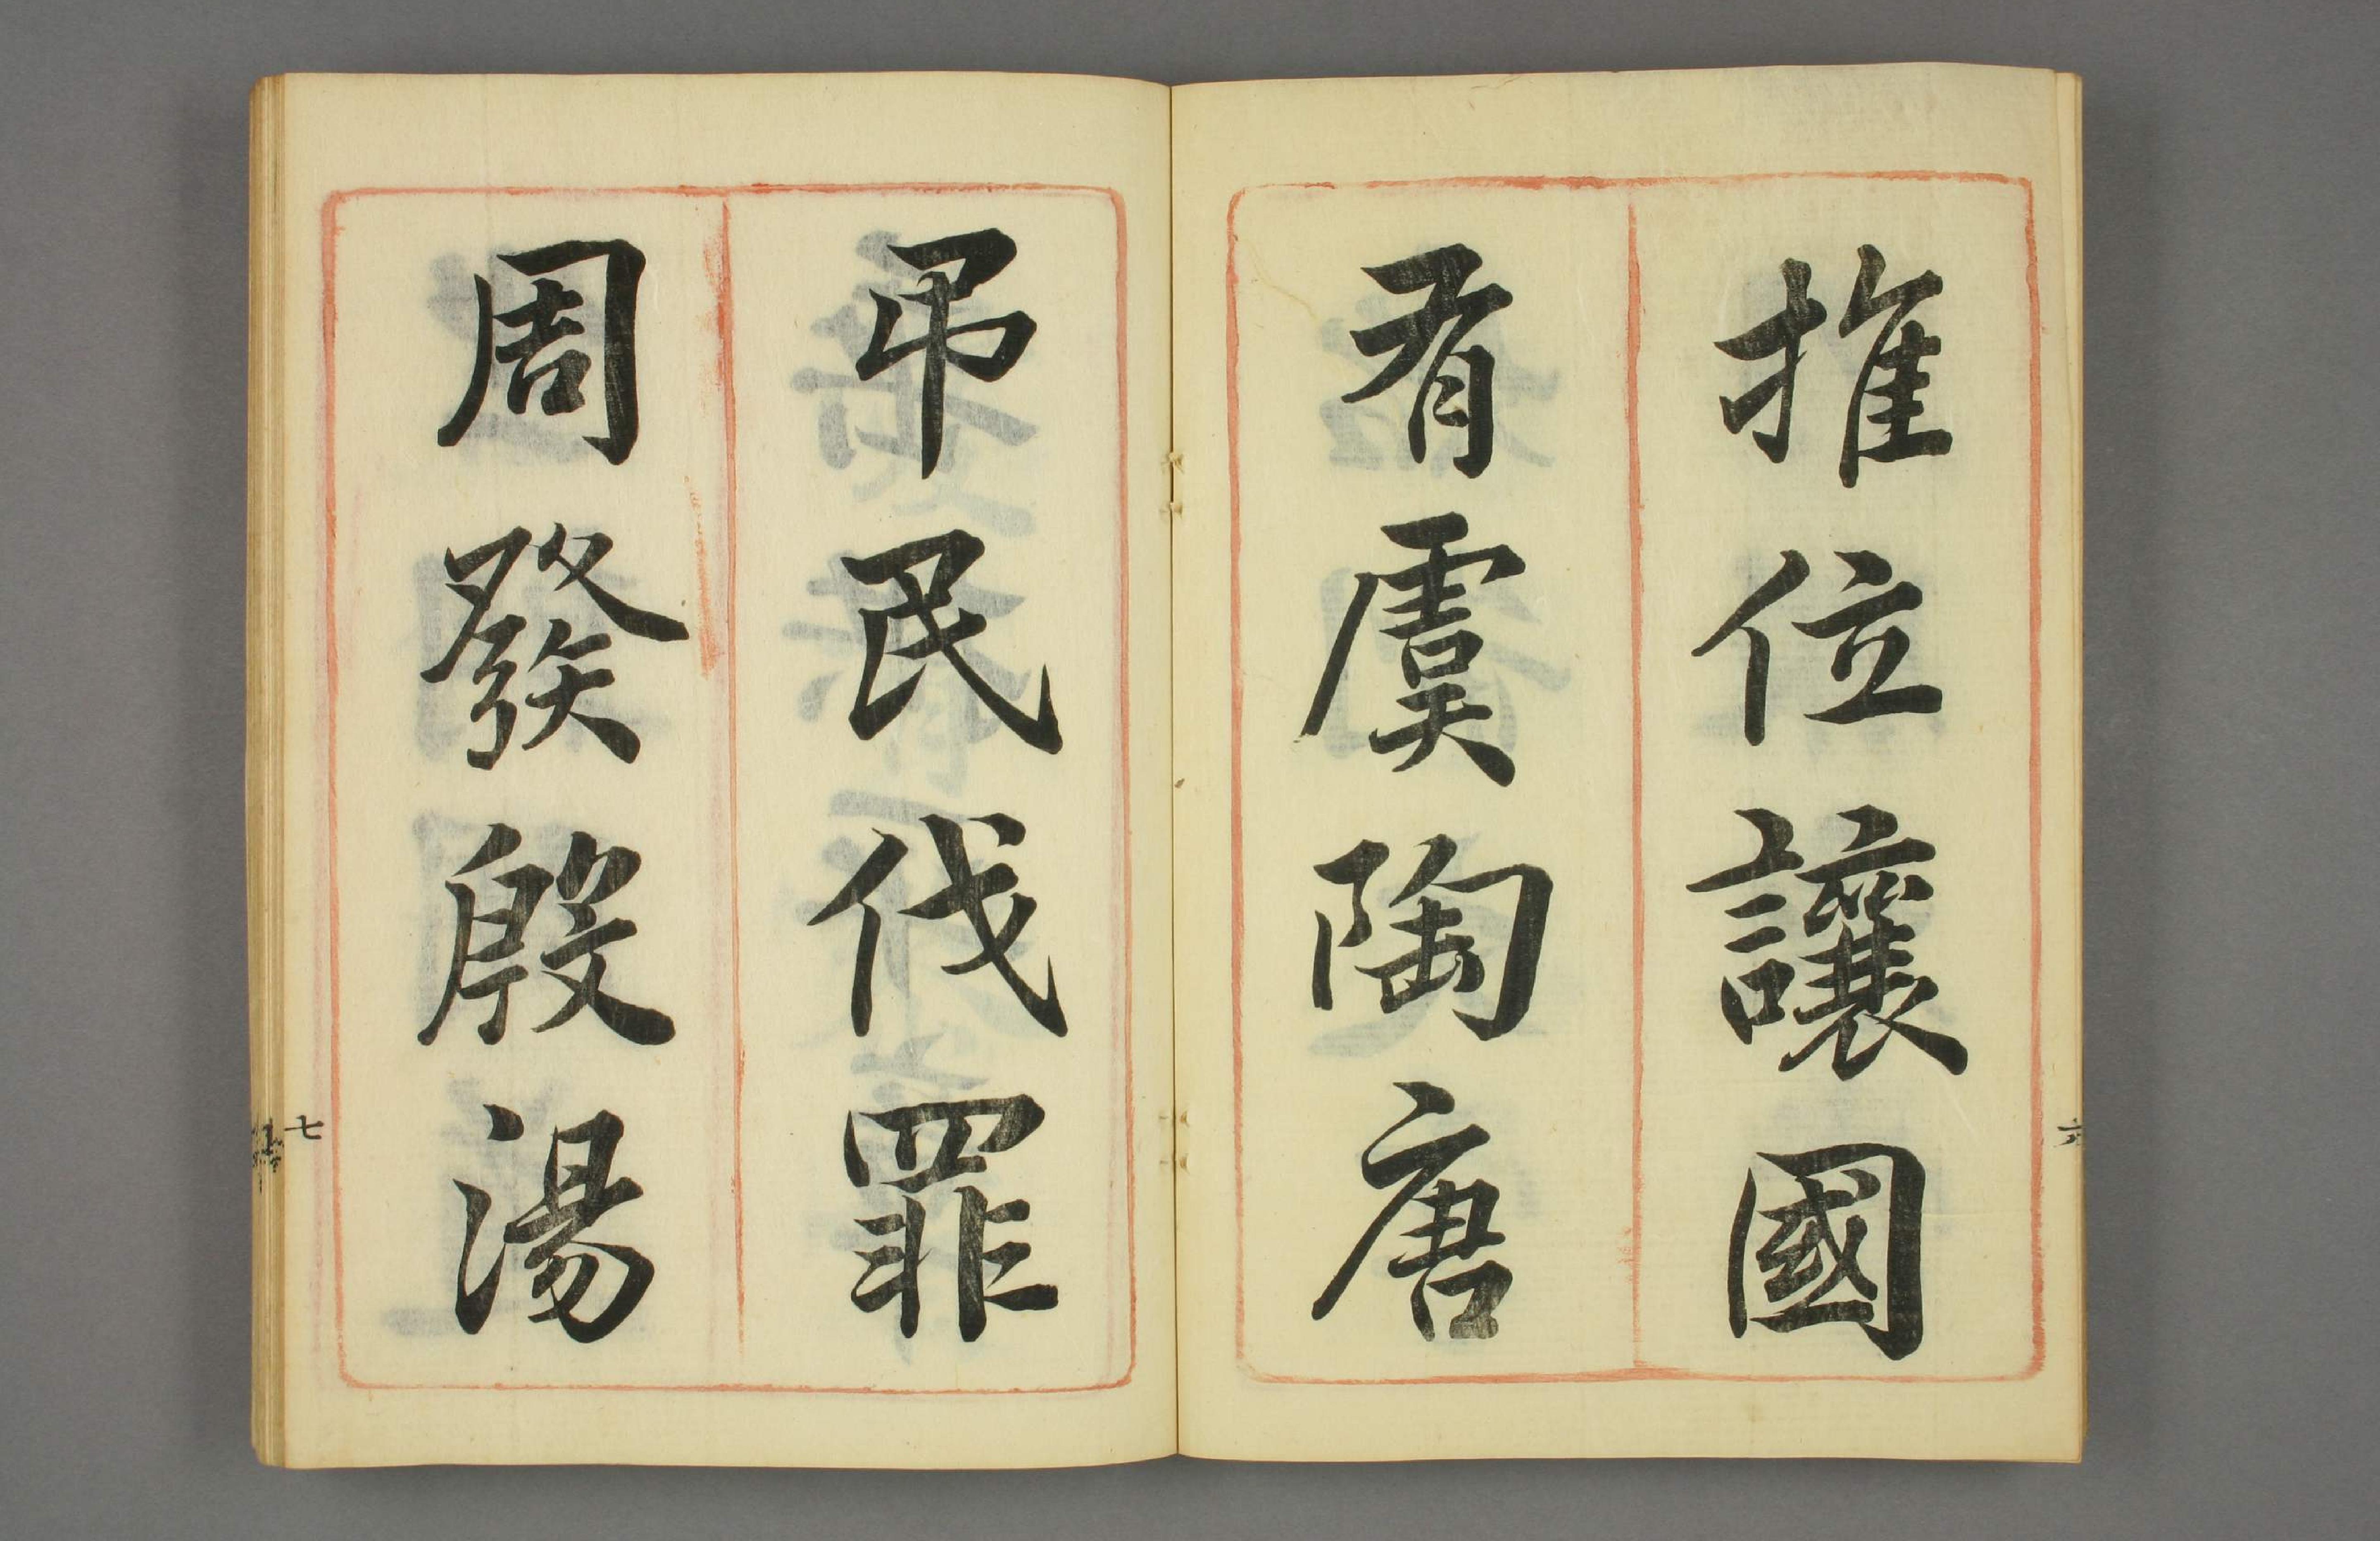 推位讓國
有虞陶唐
六
弔民伐罪
周發殷湯
七